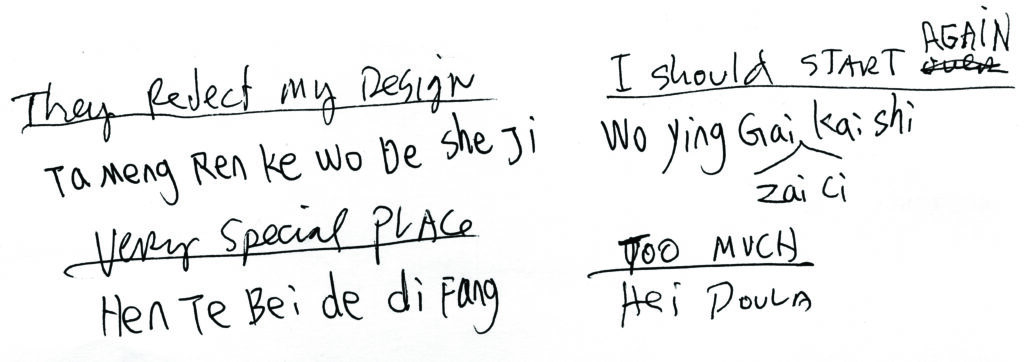 They Reject my Design
Ta Meng Ren ke Wo De she Ji
Very Special PLACe
Hen Te Bei de di Fang
I should START AGAIN
Wo Ying Gai Kai shi
Zai Ci
TOO MUCH
Hei DOULA